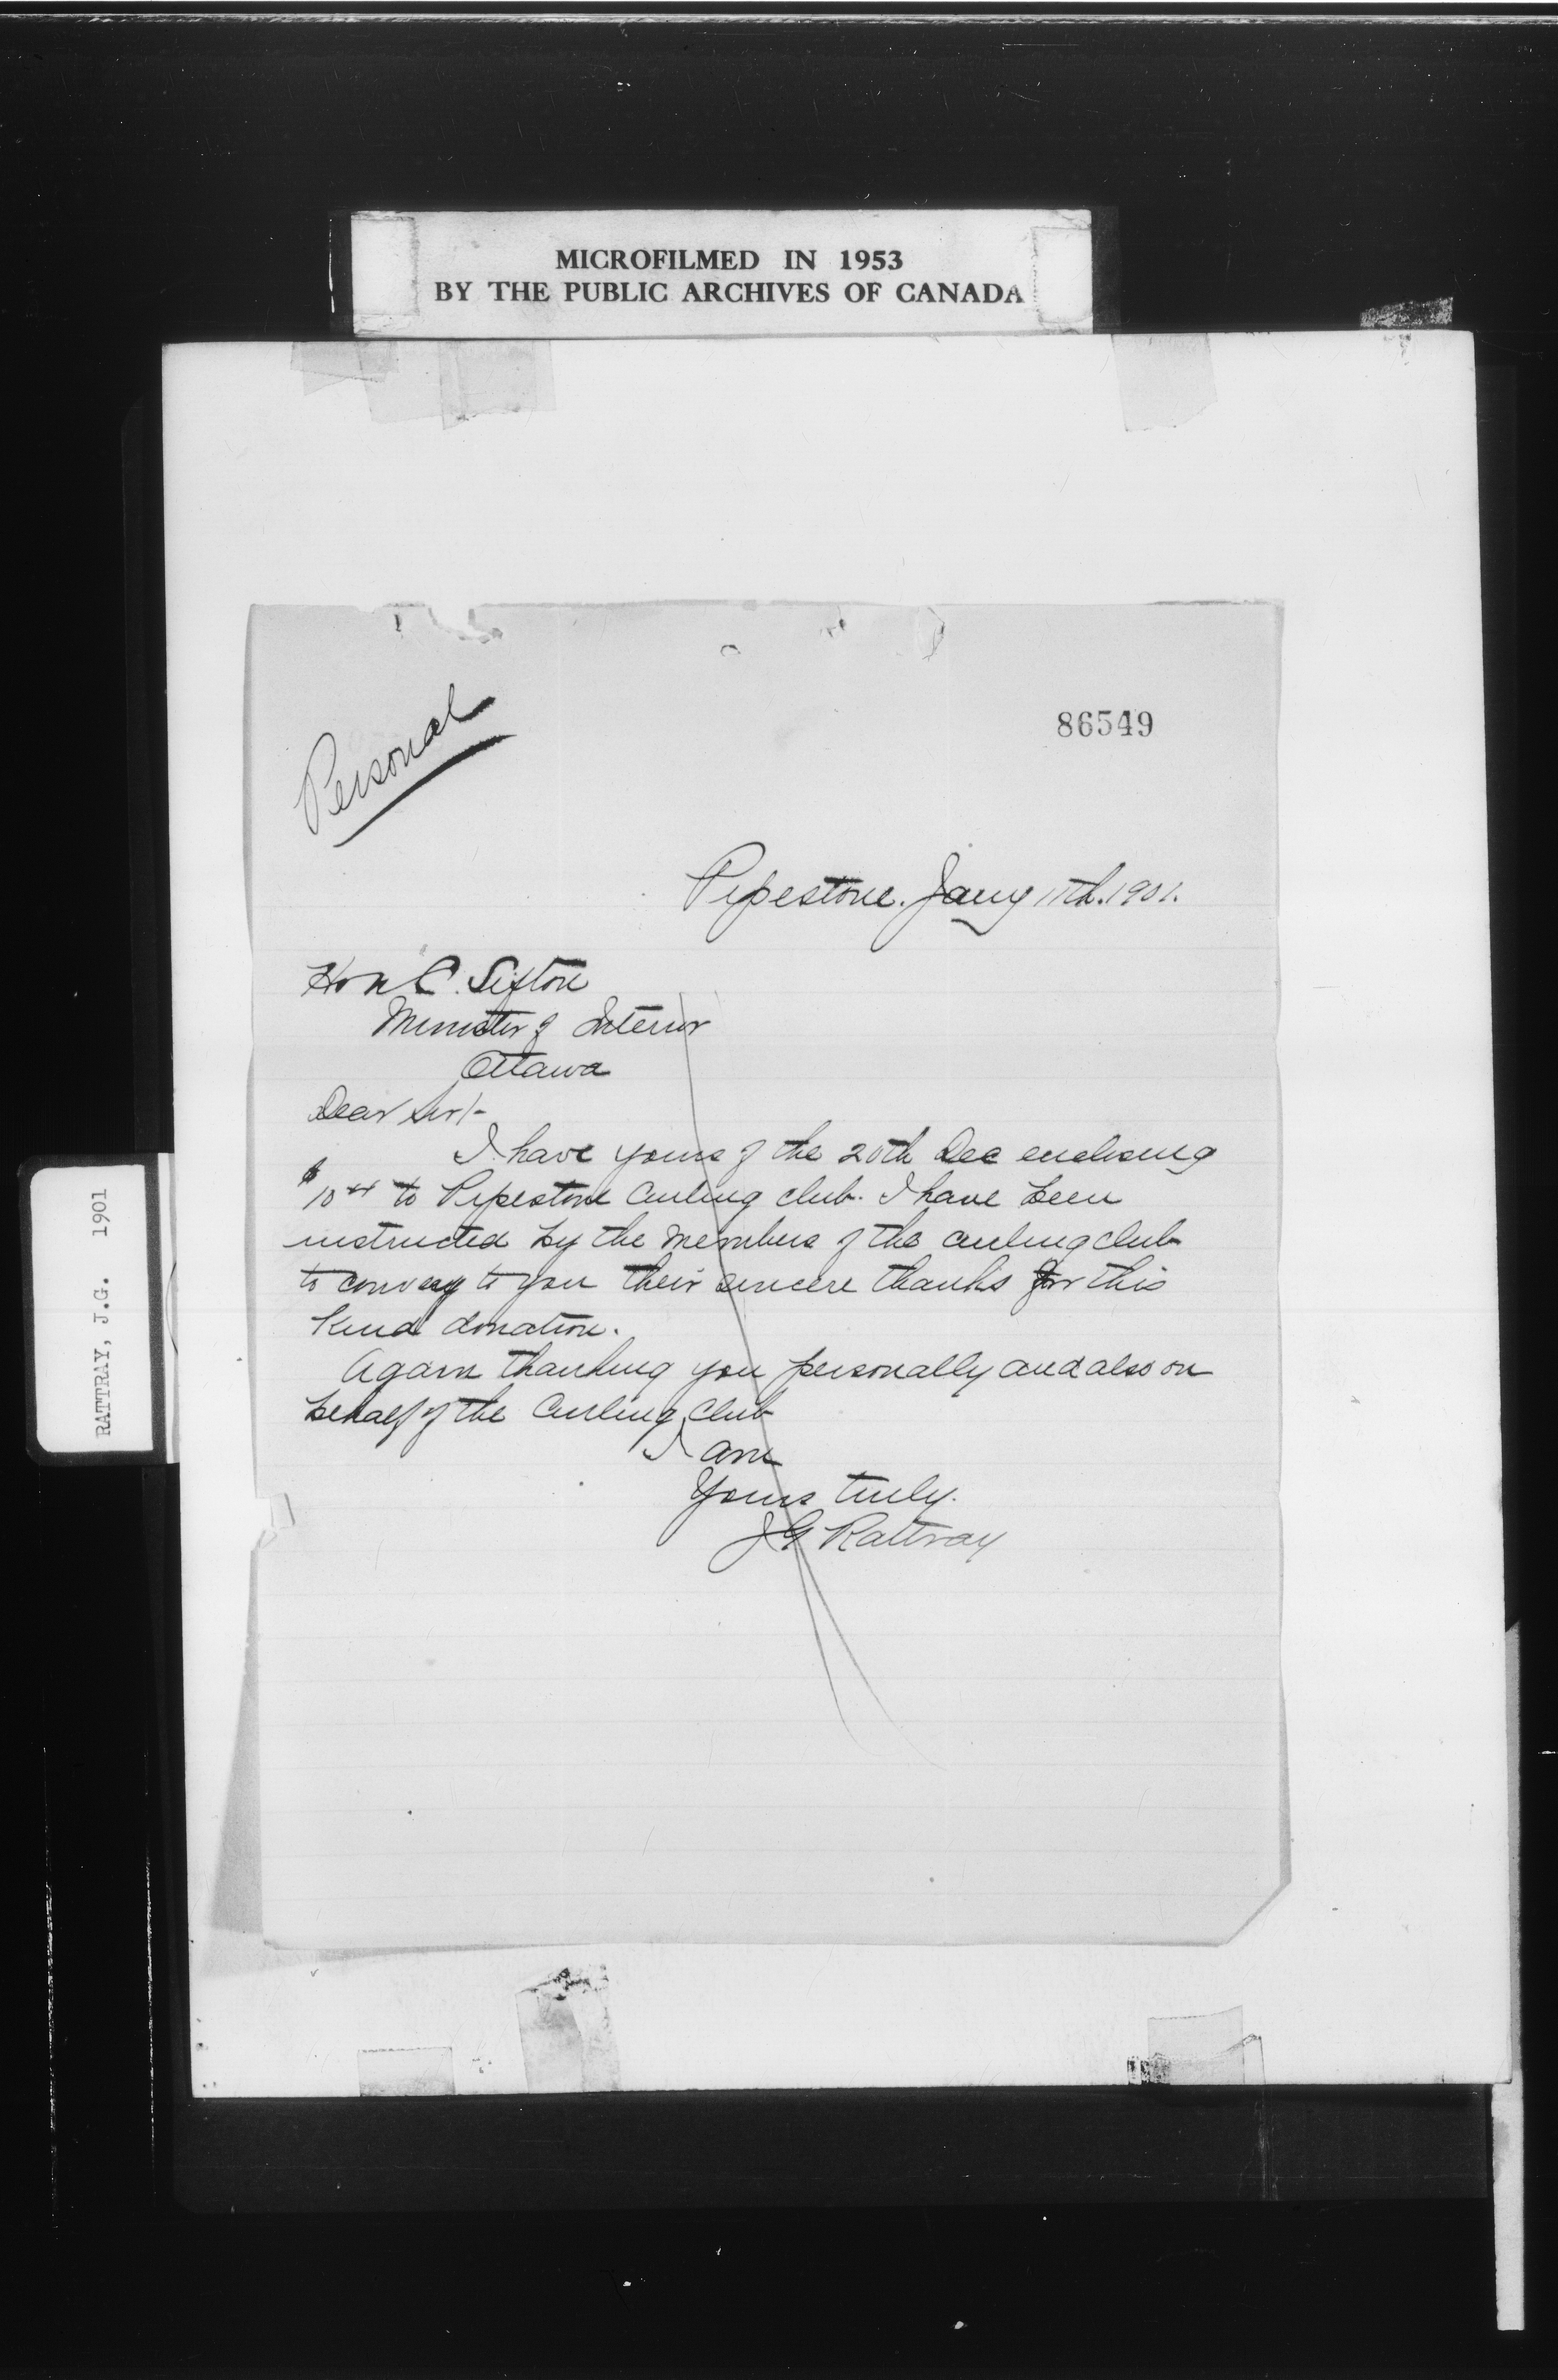 MICROFILMED IN 1953
BY THE PUBLIC ARCHIVES OF CANADA
RATTRAY, J.G. 1901
Personal
86549
Pipestone. Jany 11th. 1901.
Hon C. Sifton
Minister of Interior
Ottawa
Dear Sir/-
I have yours of the 20th Dec enclosing
$10 to Pipestone Curling club. I have been
instructed by the members of the curling club
to convey to you their sincere thanks for this
kind donation.
Again thanking you personally and also on
behalf of the Curling Club
I am
Yours truly.
J G Rattray